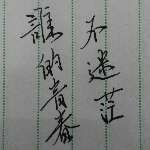 誰的青春
不迷茫